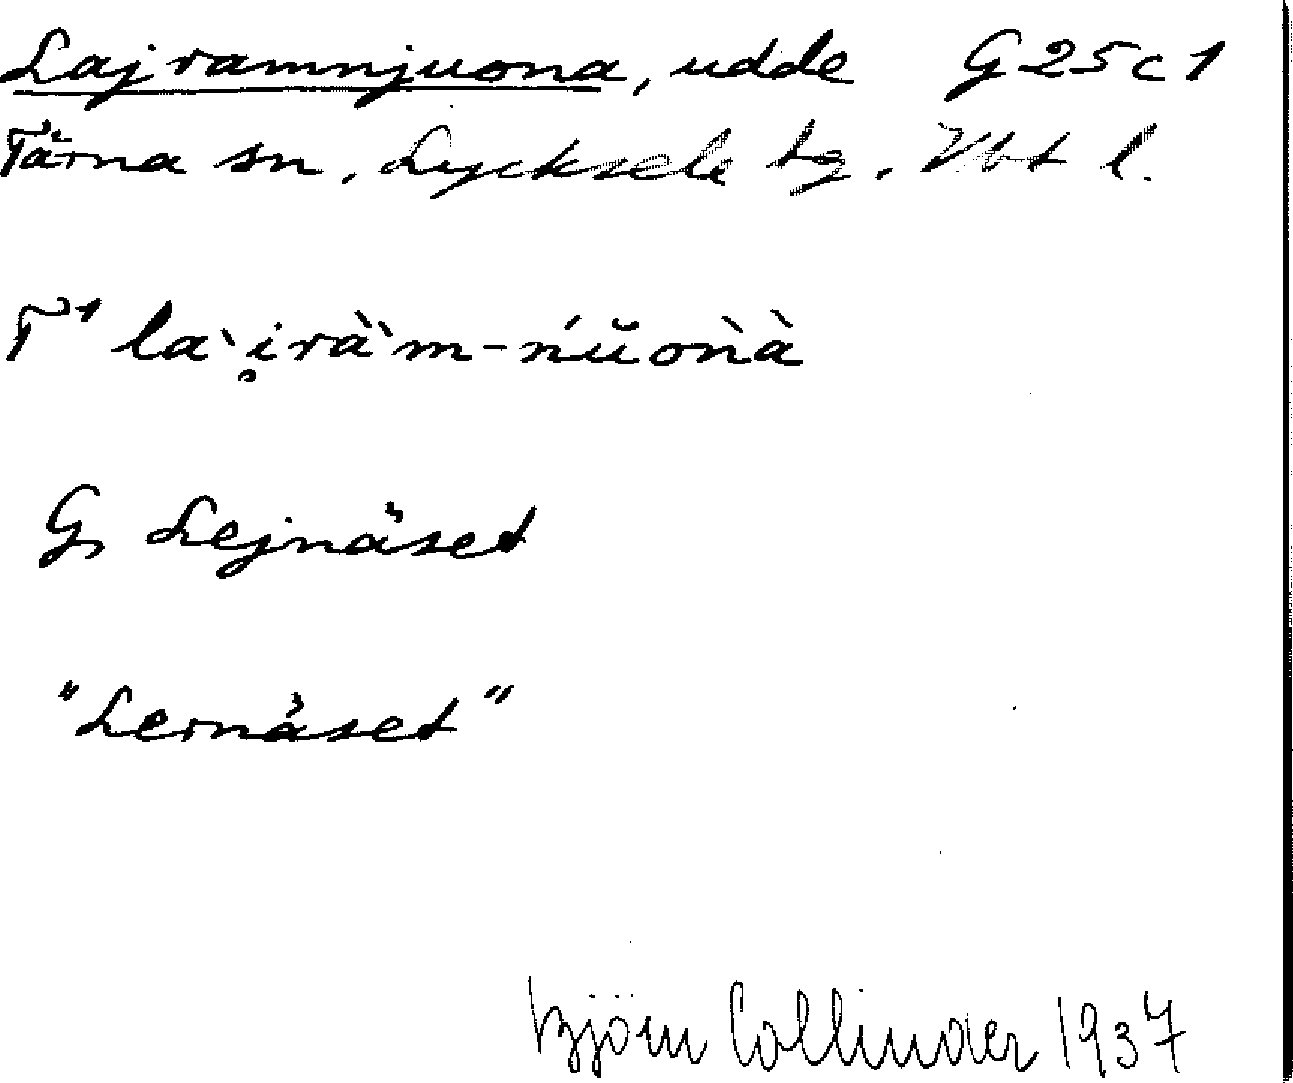 Lajramnjuona, udde G25c1
Tärna sn, Lycksele tg. Vbt l.
T¹ la`i̮rà`m-ńŭoǹà
G, Lejnäset
"Lernäset"
Björn Collinder 1937